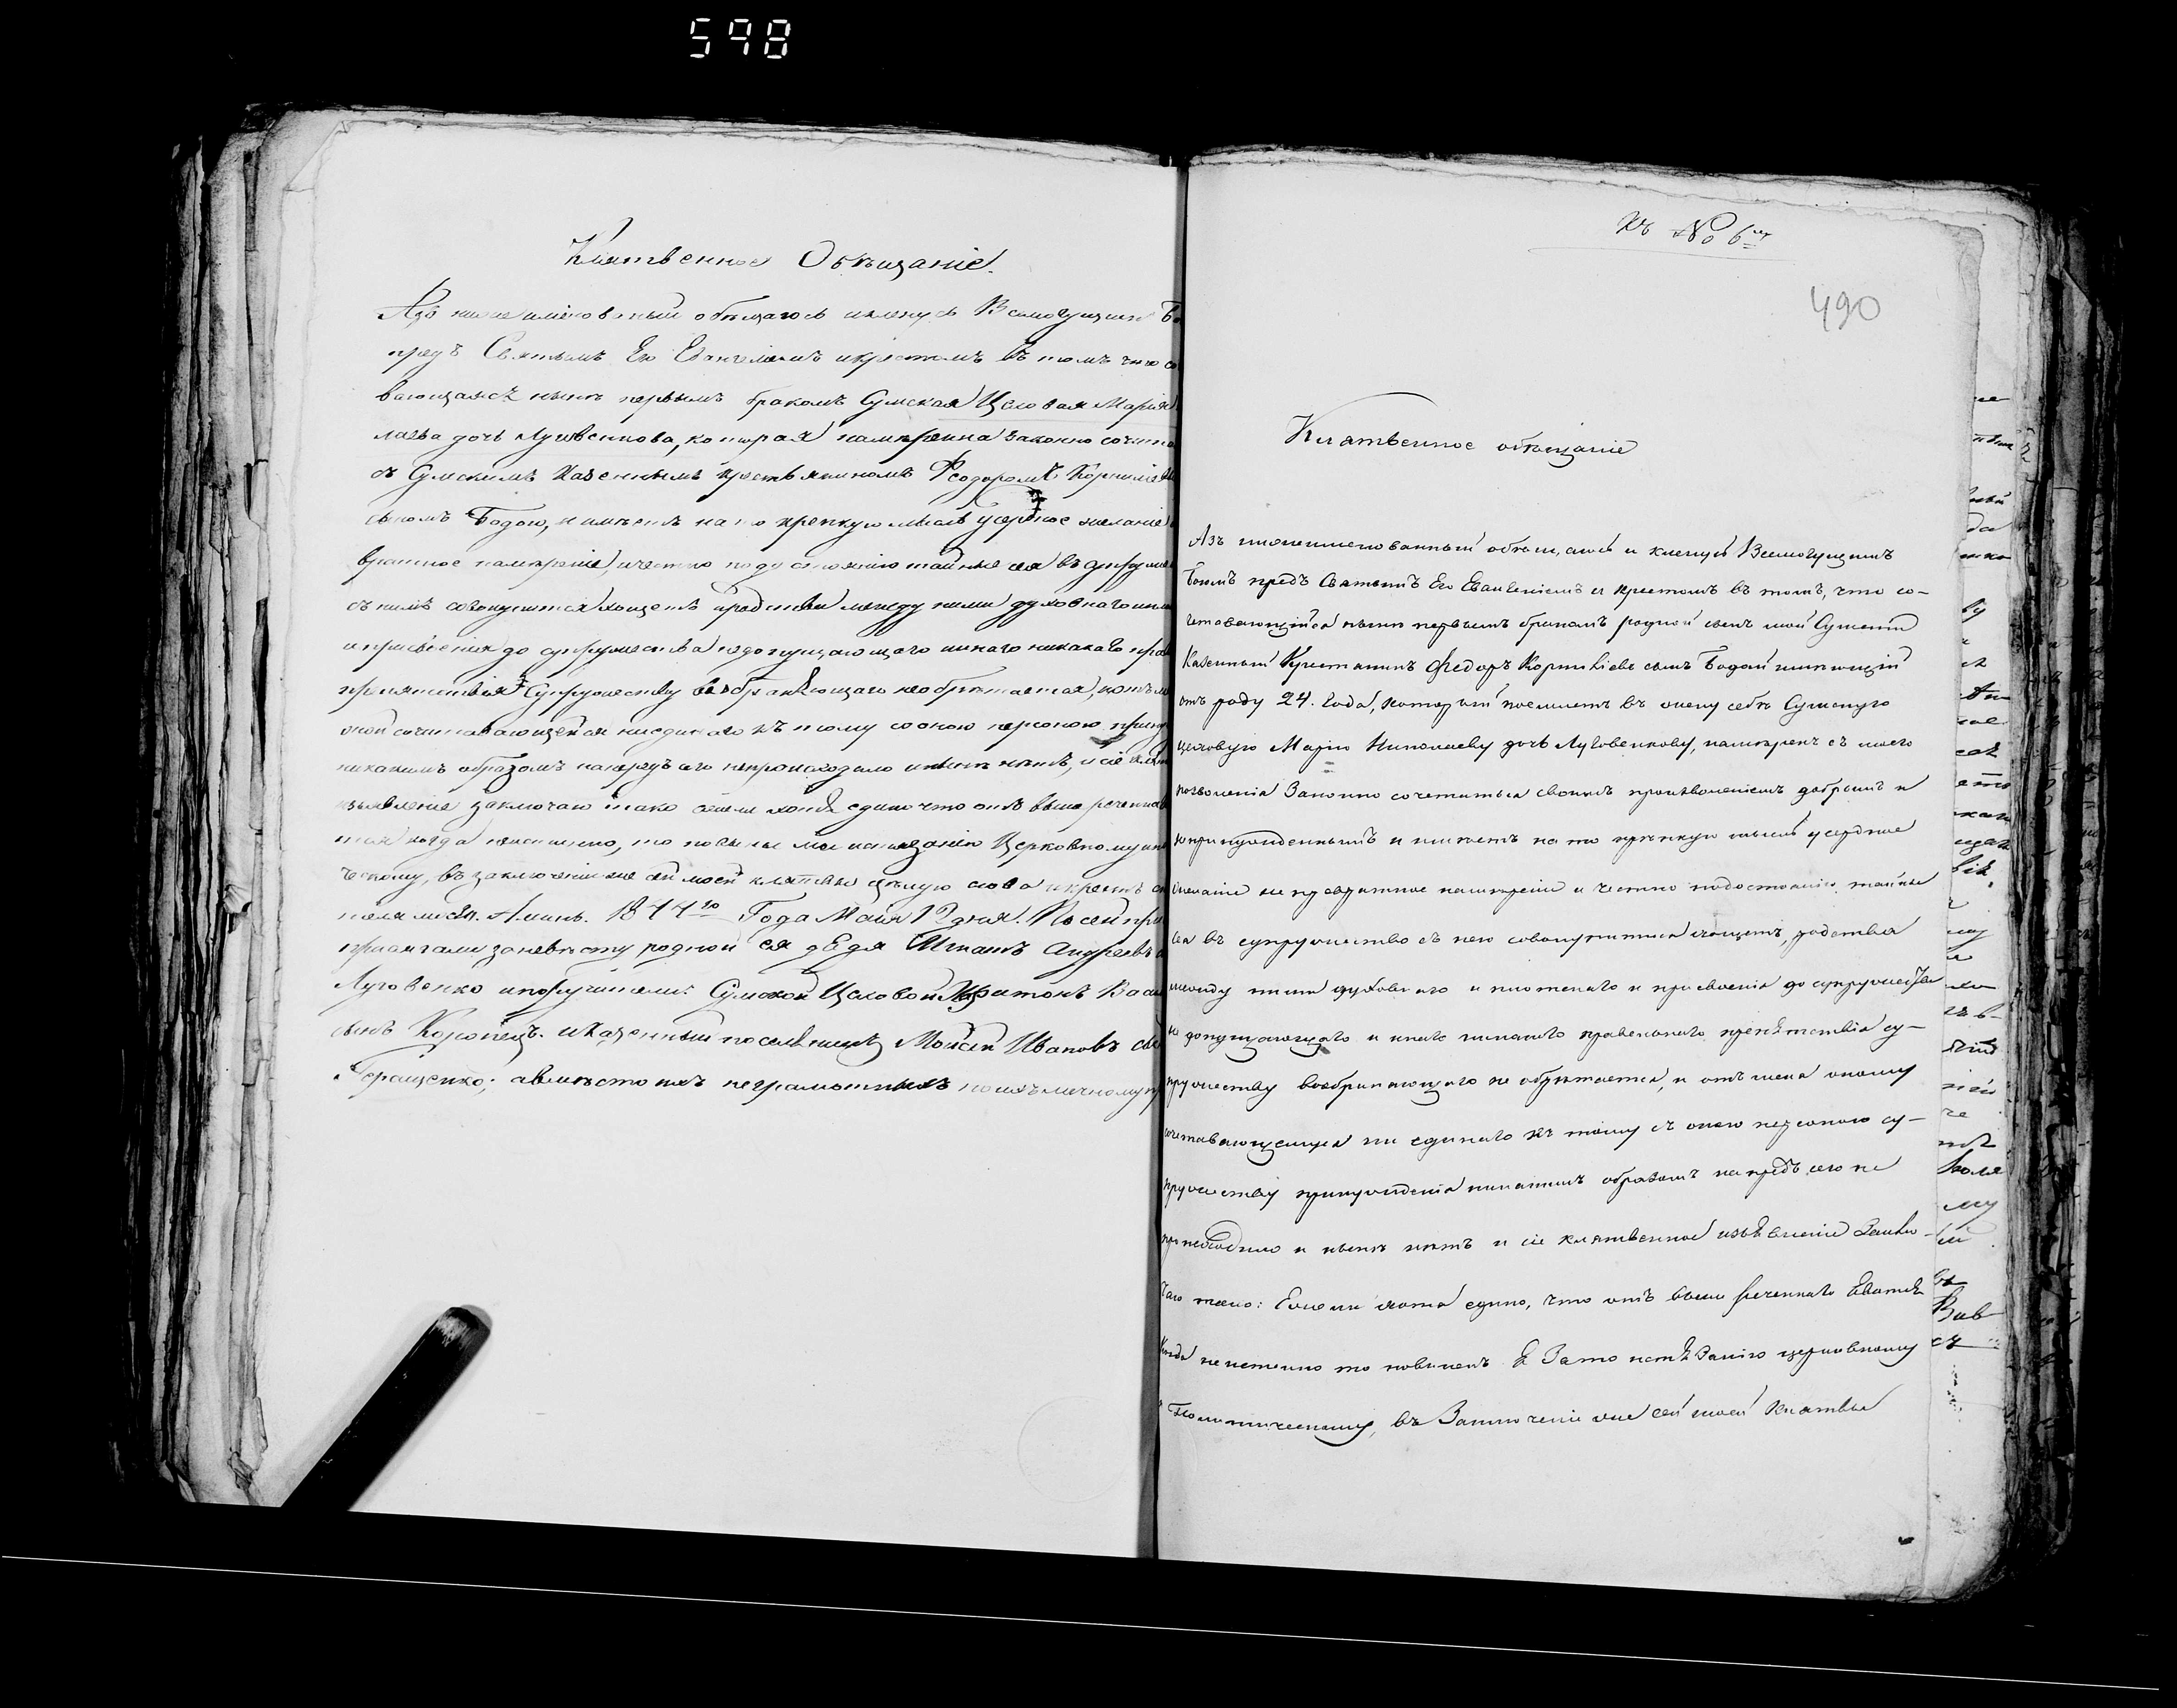 598
Клятвенное Обѣщаніе.
Азъ нижеименованный обѣщаюсь и кленусь Всемогущимъ Бо
предъ Святымъ Его Евангеліемъ и крестомъ въ томъ что со
вающаяся нынѣ первымъ бракомъ Сумская Цеховая Марія
лаева дочь Луговенкова, которая намѣренна законно сочета
съ Сумскимъ Казеннымъ крестьяниномъ Феодоромъ Корниліевы
сыномъ Бодою, и имѣетъ на то крепкую мысль усердное желаніе
вратное намѣреніе, и честно по достоянію тайные сея въ супруже
съ нимъ совокупится хощетъ, родства между ними духовнаго и пло
и присвоенія до супружества недопущающаго инаго никакаго прав
препятствія Супружеству возбраняющаго не обрѣтается, и отъ ме
оной сочитавающейся ни единаго къ тому со оною персоною прину
никакимъ образомъ напредъ сего непроисходило и нынѣ нѣтъ, и сіе клят
изъявленіе заключаю тако: ежели хотя едино что отъ выше реченнаго
тся когда неистинно, то повинны мы истязанію Церковному и по
ческому, въ заключеніи же сей моей клятвы цѣлую слова и крестъ сп
теля моего. Аминь. 1844го Года Маія 12 дня. По сей при
присягали за невѣсту родной ея дядя Игнатъ Андреевъ с
Луговенко и поручители: Сумской Цеховой Харитонъ Васи
сынъ Коропецъ. и казенный поселянинъ Моисей Ивановъ сы
Геращенко; а вмѣсто ихъ неграмотныхъ по ихъ личному пр
Къ № 6му
490
Клятвенное обѣщаніе
Азъ нижеименованный обѣщаюсь и кленусь Всемогущимъ
Богомъ предъ Святымъ Его Евангеліемъ и крестомъ въ томъ, что со-
четовающійся нынѣ первымъ бракомъ родной сынъ мой Сумской
Казенный Крестянинъ Федоръ Корниліевъ сынъ Бодай имѣющій
отъ роду 24. года, который поемлетъ въ жену себѣ Сумскую
цеховую Марію Николаеву дочь Луговенкову, намѣренъ съ моего
позволенія Законно сочетаться своимъ произволеніемъ добрымъ и
непринужденнымъ и имѣетъ на то крѣпкую мысль усердное
желаніе не превратное намѣреніе и честно подостоянію тайны
сея въ супружество съ нею совокупитися хощетъ, родства
между ними духовнаго и плотскаго и присвоенія до супружества
не допущающаго и инаго никакого правельнаго препятствія су-
пружеству возбраняющаго не обрѣтается, и отъ меня оному
сочетавающемуся ни единаго къ тому съ оною персоною су-
пружеству принужденія никакимъ образомъ напредъ сего не
происходило и нынѣ нѣтъ и сіе клятвенное изъявленіе Заклю-
чаю тако: Ежели хотя едино, что отъ выше реченнаго явится
когда не истенно то повиненъ я Зато истязанію церковному
и Политическому, въ Заключеніи же сей моей клятвы